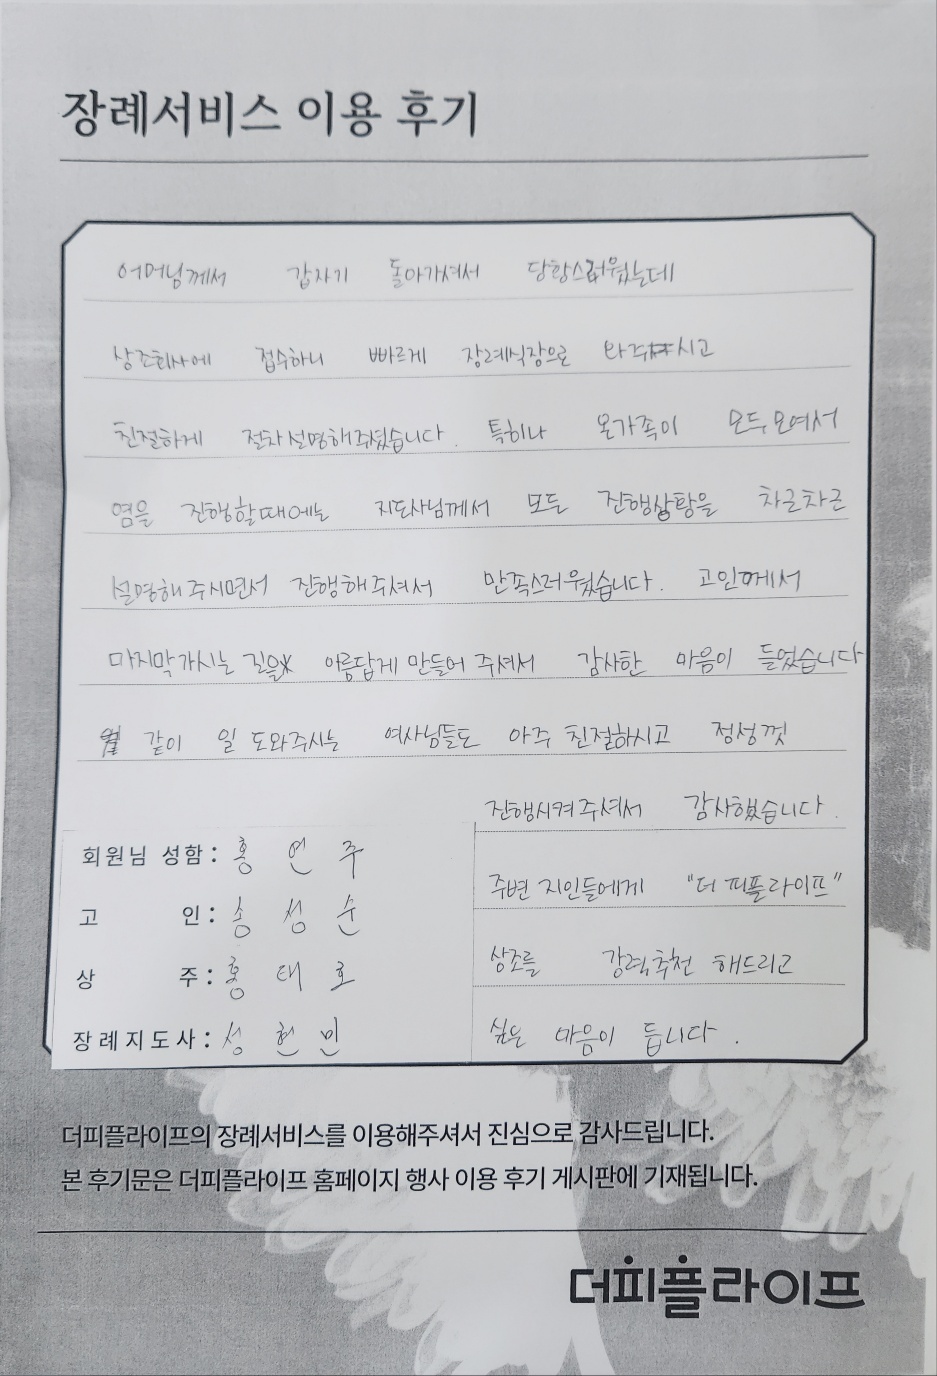 장례서비스 이용 후기
어머님께서 갑자기 돌아가셔서 당황스러웠는데
상조회사에 접수하니 빠르게 장례식장으로 와주시고
친절하게 절차설명해주셨습니다. 특히나 온가족이 모두모여서
염을 진행할때에는 지도사님께서 모든 진행상황을 차근차근
설명해주시면서 진행해주셔서 만족스러웠습니다. 고인께서
마지막가시는 길을 아름답게 만들어 주셔서 감사한 마음이 들었습니다
같이 일 도와주시는 여사님들도 아주 친절하시고 정성껏
진행시켜주셔서 감사했습니다.
주변 지인들에게 "더 피플라이프"
상조를 강력추천 해드리고
싶은 마음이 듭니다.
회원님 성함: 홍연주
고 인: 송성순
상 주: 홍태호
장례지도사: 성현민
더피플라이프의 장례서비스를 이용해주셔서 진심으로 감사드립니다.
본 후기문은 더피플라이프 홈페이지 행사 이용 후기 게시판에 기재됩니다.
더피플라이프